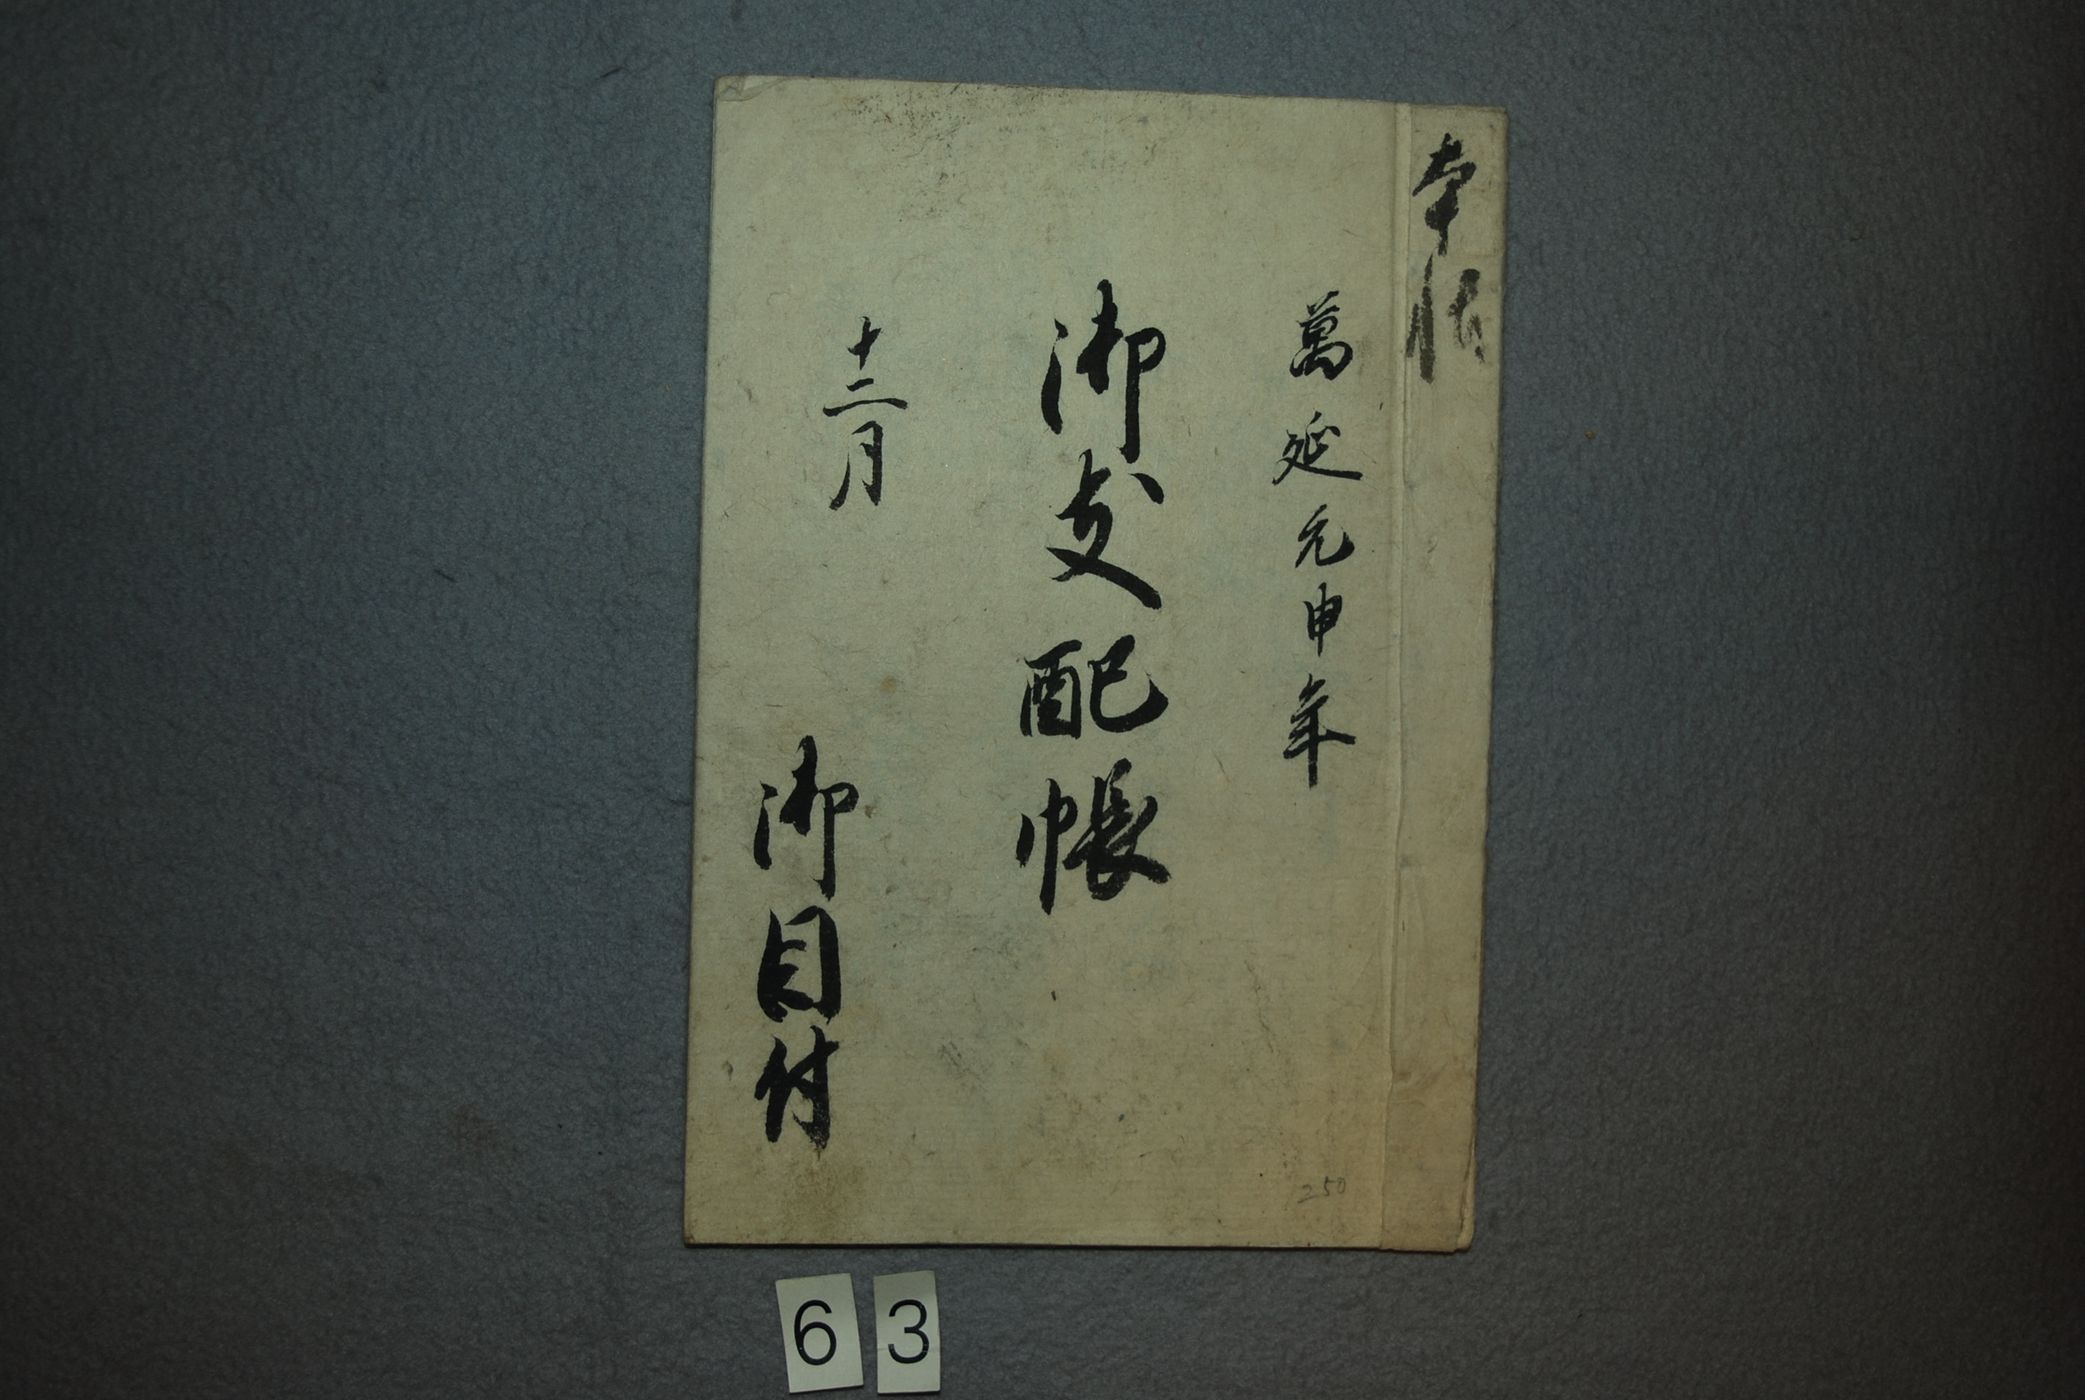 本帳
萬延元申年
御支配帳
十二月
御目付
250
63